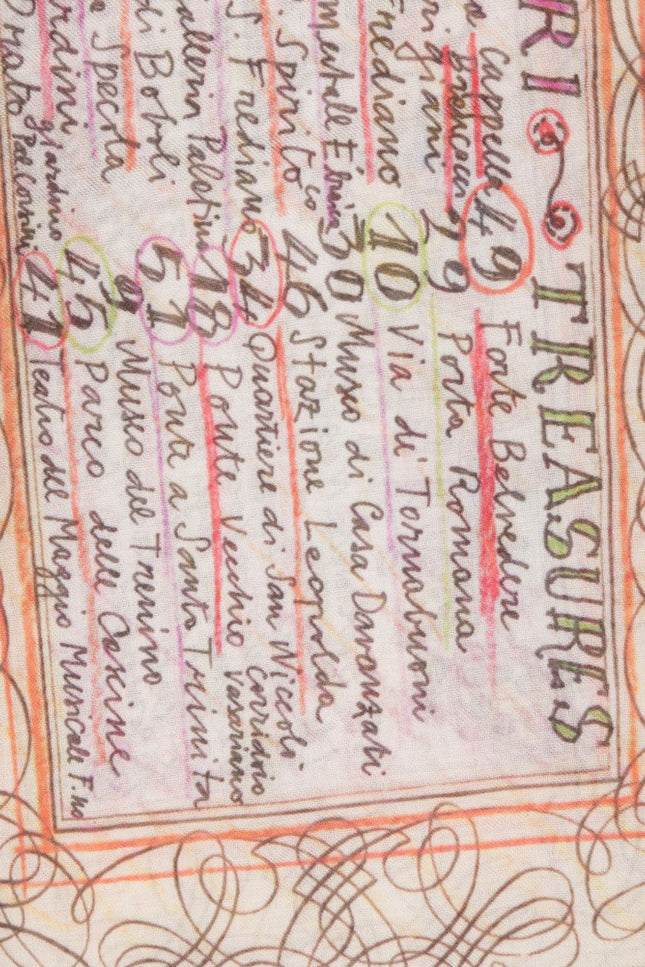 RI TREASURES
Cappella 49 Forte Belvedere
Brancacci
rigiani 39 Porta Romana
Frediano 10 Via di Tornabuoni
mentale Etrusco 30 Museo di Casa Davanzati
. Spirito 46 Stazione Leopolda
S. Frediano 34 Quartiere di San Niccolò
alleria Palatina 18 Ponte Vecchio corridoio vasariano
di Boboli 51 Ponte a Santa Trinita
a Specola 9 Museo del Trenino
ardini 45 Parco delle Cascine
Prato giardino Pal Corsini 41 Teatro del Maggio Musicale F.no